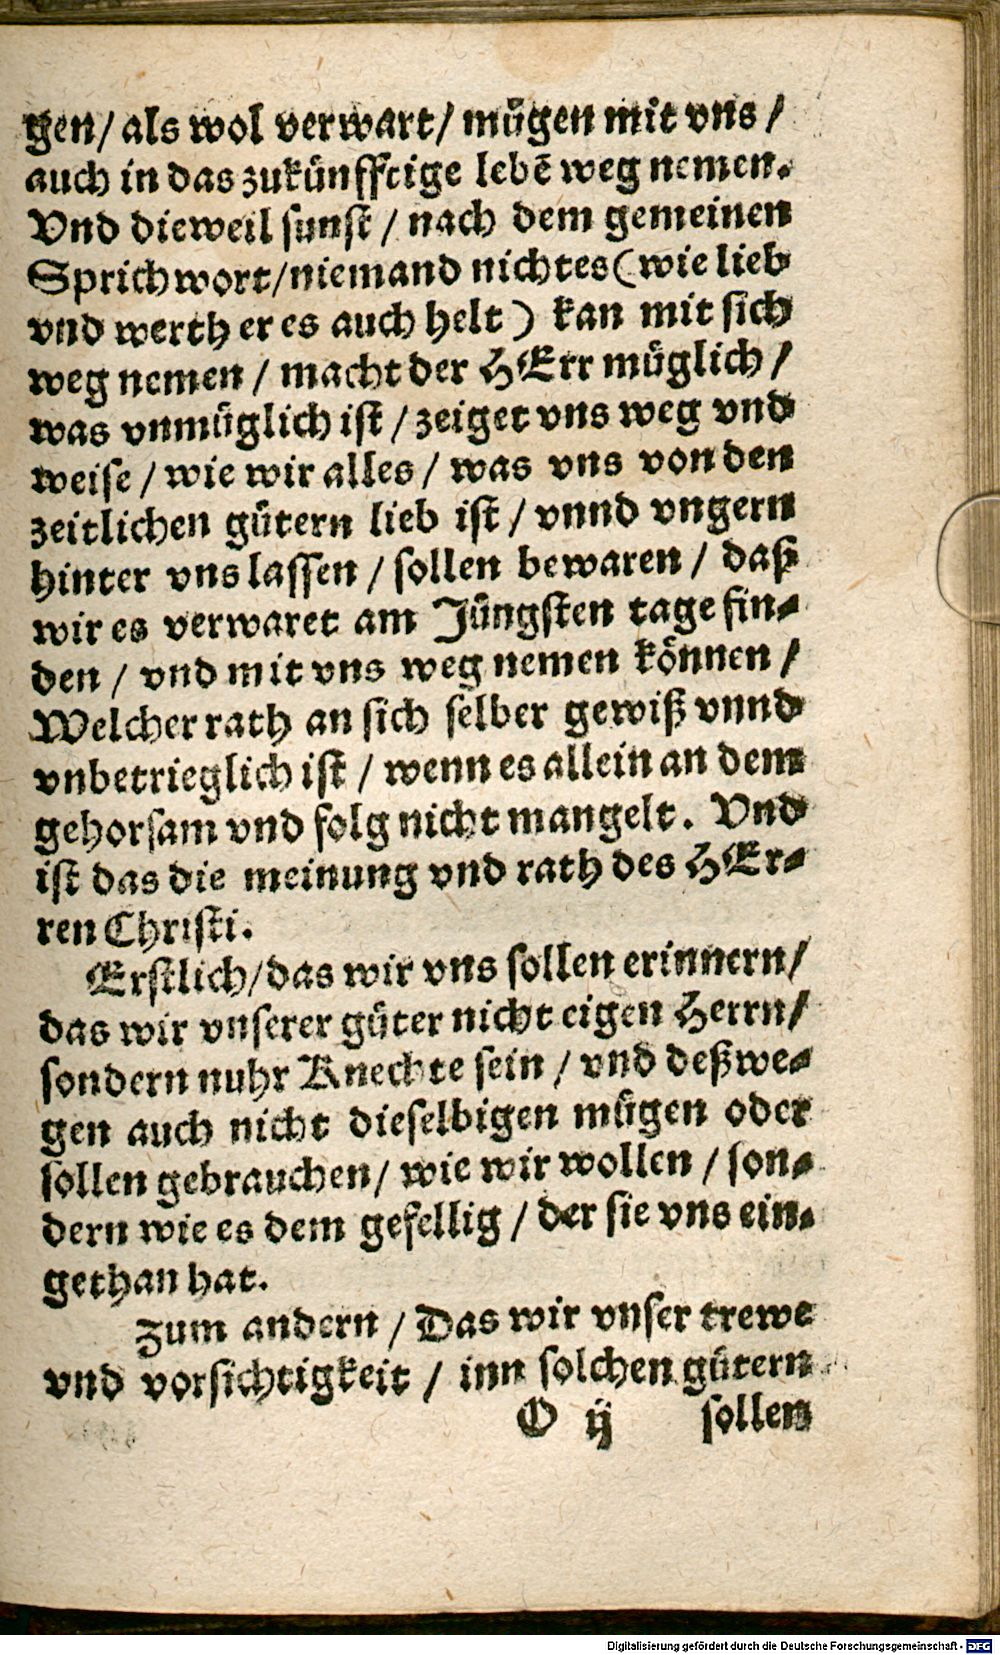 gen/ als wol verwart/ mügen mit vns/
auch in das zukünfftige lebē weg nemen.
Vnd dieweil sunst/ nach dem gemeinen
Sprichwort/niemand nichtes(wie lieb
vnd werth er es auch helt) kan mit sich
weg nemen/ macht der HErr müglich/
was vnmüglich ist/ zeiget vns weg vnd
weise/ wie wir alles/ was vns von den
zeitlichen gütern lieb ist/ vnnd vngern
hinter vns lassen/ sollen bewaren/ daß
wir es verwaret am Jüngsten tage fin-
den/ vnd mit vns weg nemen können/
Welcher rath an sich selber gewiß vnnd
vnbetrieglich ist/ wenn es allein an dem
gehorsam vnd folg nicht mangelt. Vnd
ist das die meinung vnd rath des HEr-
ren Christi.
Erstlich/das wir vns sollen erinnern/
das wir vnserer güter nicht eigen Herrn/
sondern nuhr Knechte sein/ vnd deßwe-
gen auch nicht dieselbigen mügen oder
sollen gebrauchen/ wie wir wollen/ son-
dern wie es dem gefellig/ der sie vns ein-
gethan hat.
Zum andern/ Das wir vnser trewe
vnd vorsichtigkeit/ inn solchen gütern
O ij sollen
Digitalisierung gefördert durch die Deutsche Forschungsgemeinschaft - DFG